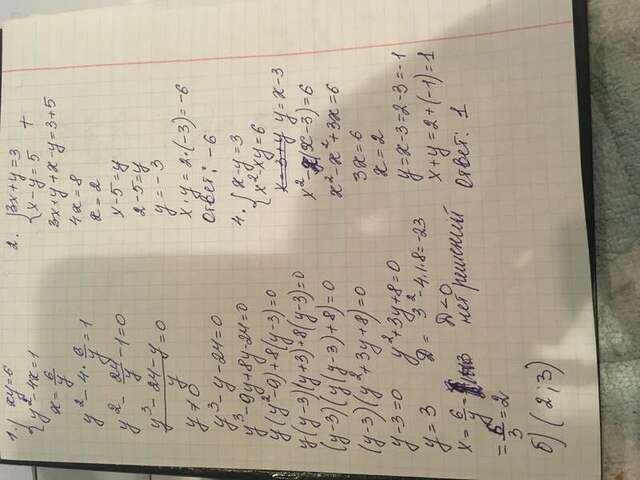 1. { xy=6
y²-4x=1
x=6/y
y²-4·6/y=1
y²-24/y-1=0
y³-24-y/y=0
y≠0
y³-y-24=0
y³-9y+8y-24=0
y(y²-9)+8(y-3)=0
y(y-3)(y+3)+8(y-3)=0
(y-3)(y(y-3)+8)=0
(y-3)(y²+3y+8)=0
y-3=0 y²+3y+8=0
y=3 D= 3²-4·1·8=-23
D<0
нет решений
x=6/y=
=6/3=2
б) (2;3)
2. { 3x+y=3
x-y=5 +
3x+y+x-y=3+5
4x=8
x=2
x-5=y
2-5=y
y=-3
x·y=2·(-3)=-6
Ответ: -6
4. { x-y=3
x²-xy=6
x=3+y y=x-3
x²-x(x-3)=6
x²-x²+3x=6
3x=6
x=2
y=x-3=2-3=-1
x+y=2+(-1)=1
Ответ: 1